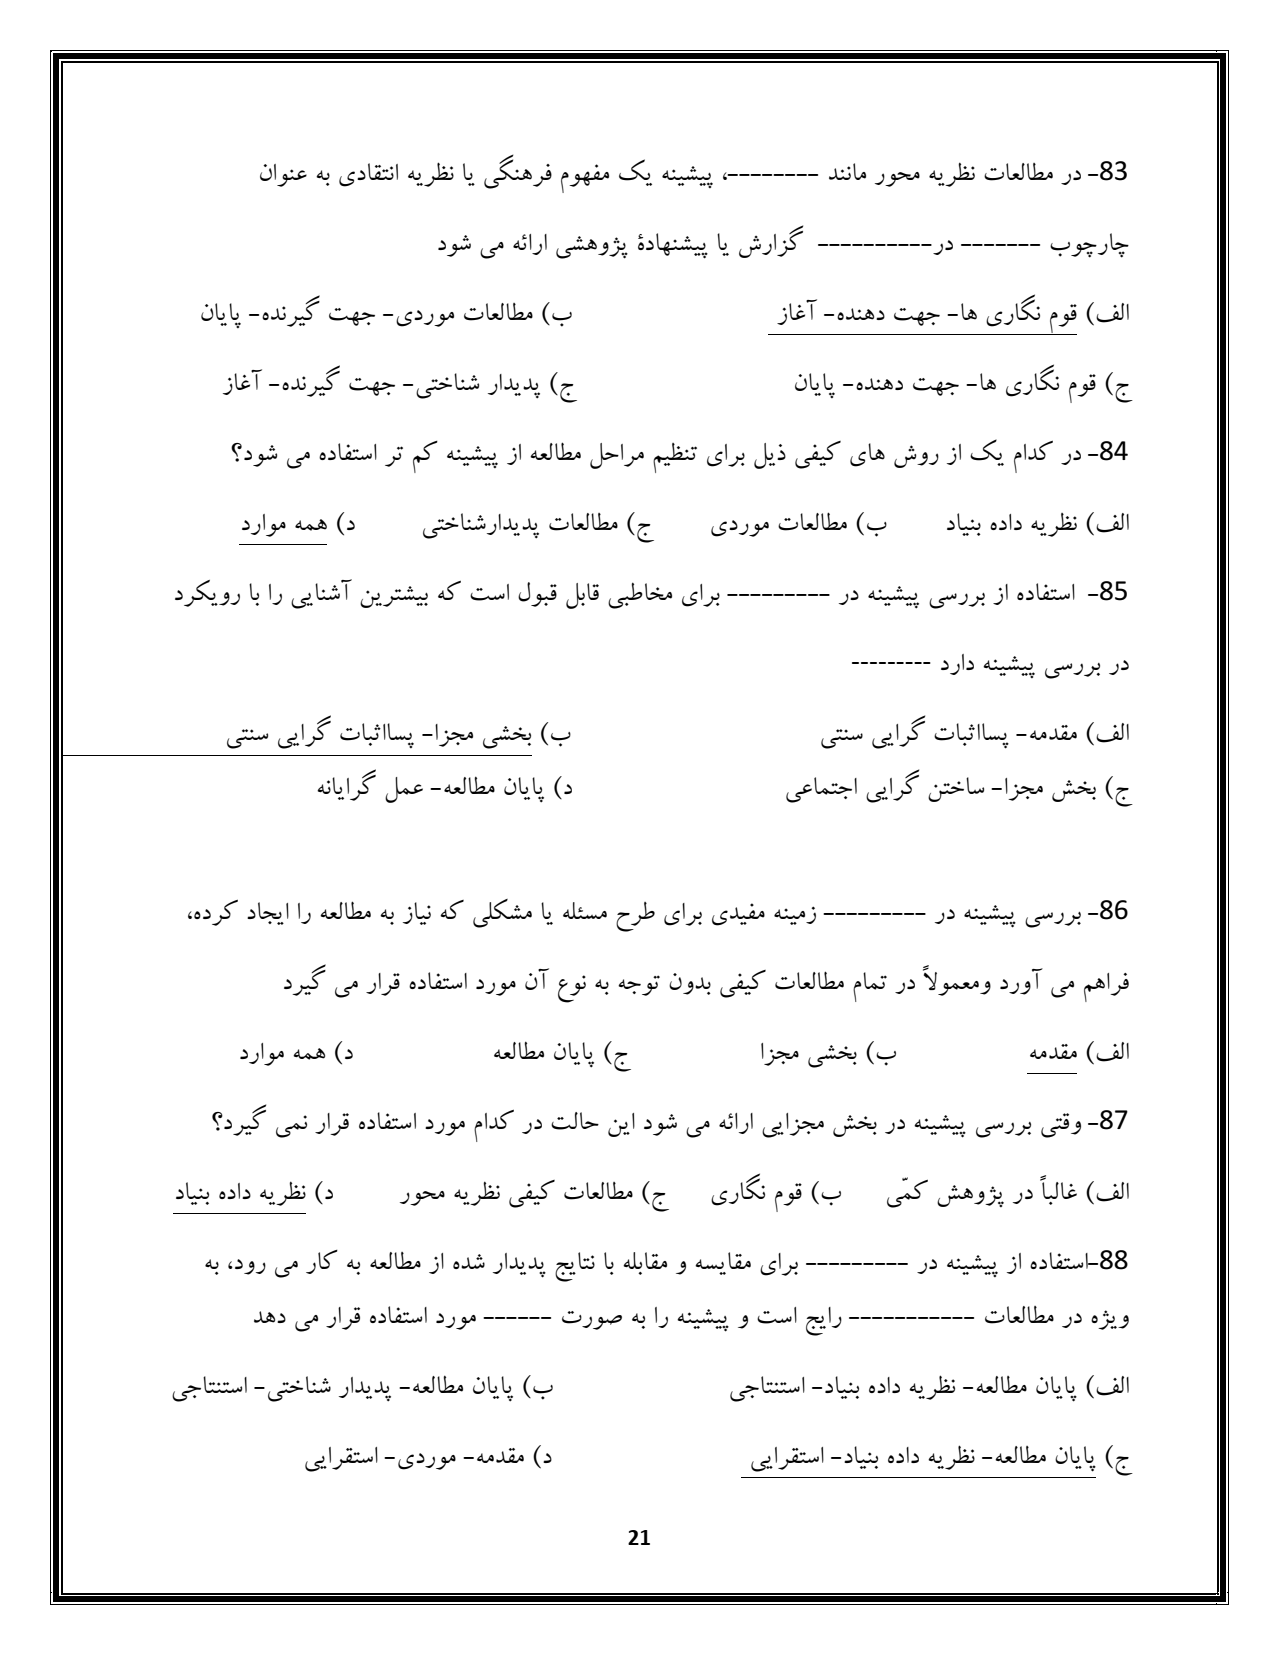 83- در مطالعات نظریه محور مانند --------، پیشینه یک مفهوم فرهنگی یا نظریه انتقادی به عنوان
چارچوب ------- در---------- گزارش یا پیشنهادۀ پژوهشی ارائه می شود
الف) قوم نگاری ها- جهت دهنده- آغاز ب) مطالعات موردی- جهت گیرنده- پایان
ج) قوم نگاری ها- جهت دهنده- پایان ج) پدیدار شناختی- جهت گیرنده- آغاز
84- در کدام یک از روش های کیفی ذیل برای تنظیم مراحل مطالعه از پیشینه کم تر استفاده می شود؟
الف) نظریه داده بنیاد ب) مطالعات موردی ج) مطالعات پدیدارشناختی د) همه موارد
85- استفاده از بررسی پیشینه در --------- برای مخاطبی قابل قبول است که بیشترین آشنایی را با رویکرد
در بررسی پیشینه دارد ---------
الف) مقدمه- پسااثبات گرایی سنتی ب) بخشی مجزا- پسااثبات گرایی سنتی
ج) بخش مجزا- ساختن گرایی اجتماعی د) پایان مطالعه- عمل گرایانه
86- بررسی پیشینه در --------- زمینه مفیدی برای طرح مسئله یا مشکلی که نیاز به مطالعه را ایجاد کرده،
فراهم می آورد ومعمولاً در تمام مطالعات کیفی بدون توجه به نوع آن مورد استفاده قرار می گیرد
الف) مقدمه ب) بخشی مجزا ج) پایان مطالعه د) همه موارد
87- وقتی بررسی پیشینه در بخش مجزایی ارائه می شود این حالت در کدام مورد استفاده قرار نمی گیرد؟
الف) غالباً در پژوهش کمّی ب) قوم نگاری ج) مطالعات کیفی نظریه محور د) نظریه داده بنیاد
88-استفاده از پیشینه در --------- برای مقایسه و مقابله با نتایج پدیدار شده از مطالعه به کار می رود، به
ویژه در مطالعات ----------- رایج است و پیشینه را به صورت ------ مورد استفاده قرار می دهد
الف) پایان مطالعه- نظریه داده بنیاد- استنتاجی ب) پایان مطالعه- پدیدار شناختی- استنتاجی
ج) پایان مطالعه- نظریه داده بنیاد- استقرایی د) مقدمه- موردی- استقرایی
21